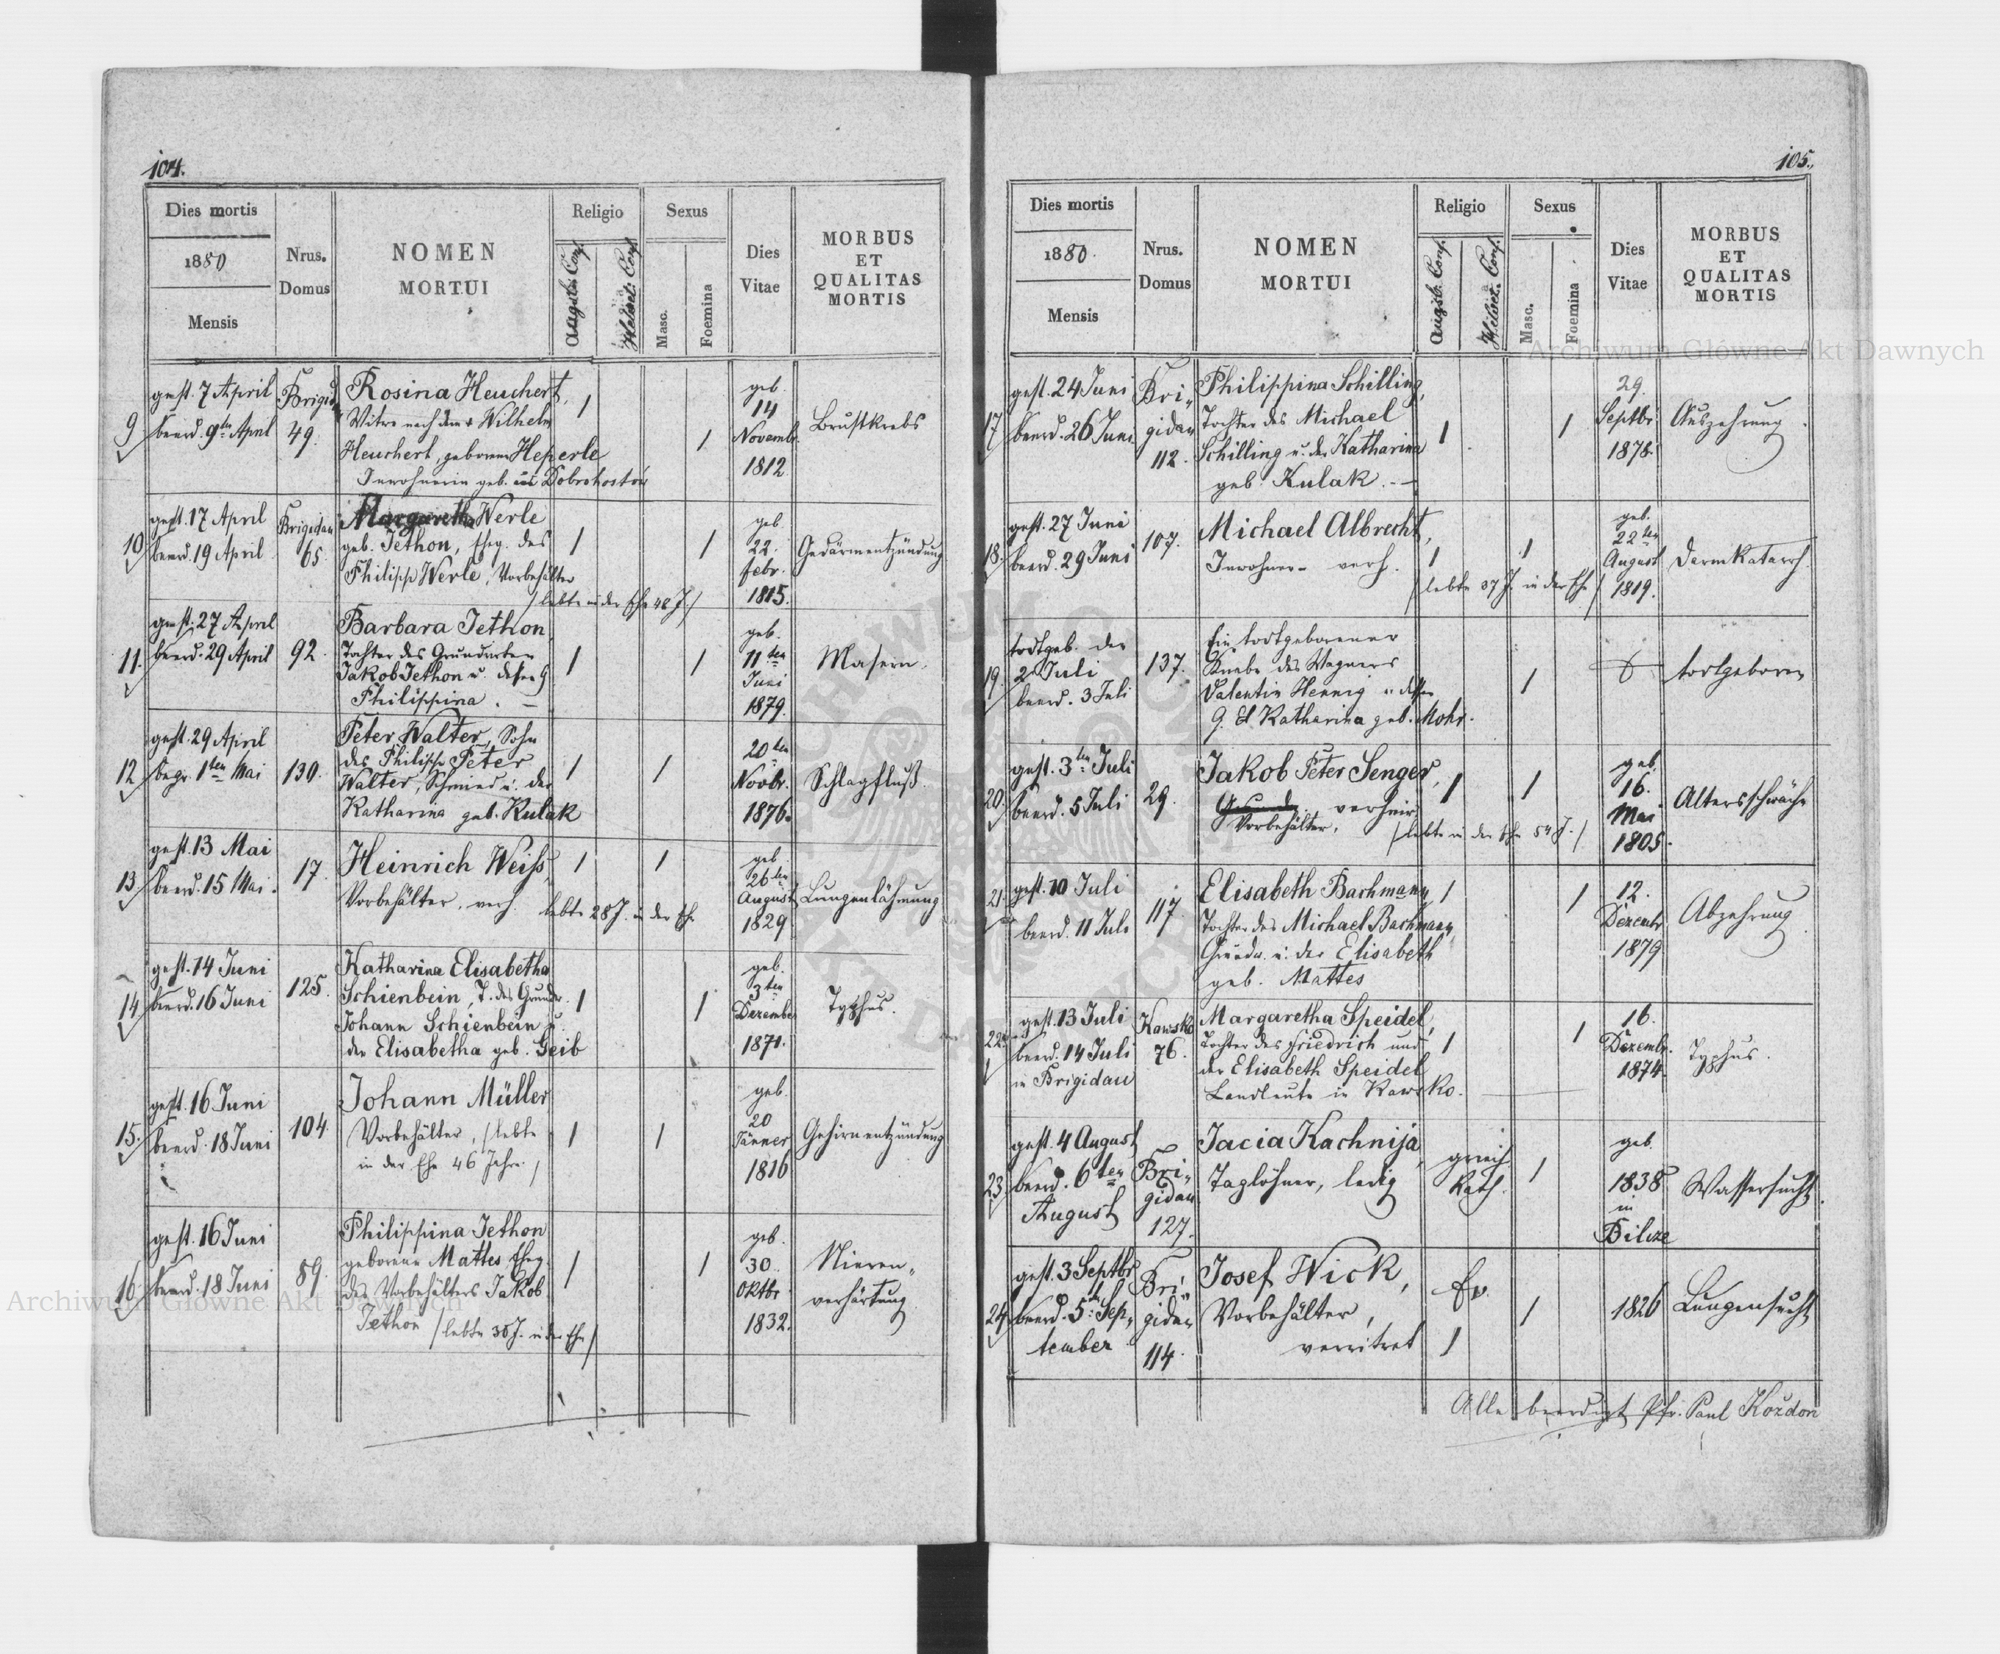 104.
Dies mortis
1880
Mensis
Nrus.
Domus
NOMEN
MORTUI
Religio
Augsb. Conf.
Helvet. Conf.
Sexus
Masc.
Foemina
Dies
Vitae
MORBUS
ET
QUALITAS
MORTIS
9
gest. 7 April
beerd. 9ten April
Brigid
49.
Rosina Heuchert,
Witwe nach dem † Wilhelm
Heuchert, geborene Heperle
Inwohnerin geb. in Dobrohostów
geb.
14
Novemb.
1812
Brustkrebs
10
gest. 17 April
beerd. 19 April
Brigidau
65.
Margaretha Werle
geb. Jethon, Eheg. des
Philipp Werle, Vorbehälter
/lebte in der Ehe 48 J./
geb.
22.
Febr.
1815.
Gedärmentzündung
11.
gest. 27 April
beerd. 29 April
92.
Barbara Jethon,
Tochter des Grundwirten
Jakob Jethon u. dessen G.
Philippina.
geb.
11ten
Juni
1879.
Masern.
12
gest. 29 April
begr. 1ten Mai
130.
Peter Walter, Sohn
des Philipp Peter
Walter, Schmied u. der
Katharina geb. Kulak
20ten
Novbr.
1876.
Schlagfluß.
13
gest. 13 Mai
beerd. 15 Mai.
17.
Heinrich Weiss,
Vorbehälter, verh. lebte 28 J. in der Ehe
geb.
26ten
August
1829
Lungenlähmung
14
gest. 14 Juni
beerd. 16 Juni
125.
Katharina Elisabetha
Schienbein, T. des Grundw.
Johann Schienbein u.
der Elisabetha geb. Geib
geb.
3ten
Dezember
1871.
Typhus.
15.
gest. 16 Juni
beerd. 18 Juni
104
Johann Müller
Vorbehälter, /lebte
in der Ehe 46 Jahre./
geb.
20
Jänner
1816
Gehirnentzündung
16
gest. 16 Juni
beerd. 18 Juni
89.
Philippina Jethon
geborene Mattes Eheg.
des Vorbehälters Jakob
Jethon /lebte 30 J. in der Ehe/
geb.
30.
Oktbr
1832.
Nieren-
verhärtung
105.
Dies mortis
1880.
Mensis
Nrus.
Domus
NOMEN
MORTUI
Religio
Augsb. Conf.
Helvet. Conf.
Sexus
Masc.
Foemina
Dies
Vitae
MORBUS
ET
QUALITAS
MORTIS
17
gest. 24 Juni
beerd. 26 Juni
Bri-
gidau
112.
Philippina Schilling,
Tochter des Michael
Schilling u. der Katharina
geb. Kulak.
29.
Septbr
1878.
Auszehrung.
18.
gest. 27 Juni
beerd. 29 Juni
107.
Michael Albrecht,
Inwohner - verh.
/lebte 37 J. in der Ehe/
geb.
22ten
August
1819.
Darmkatarrh.
19.
todtgeb. den
2 Juli
beerd. 3 Juli
137.
Ein todtgeborener
Knabe des Wagners
Valentin Hennig u. dessen
G. El. Katharina geb. Mohr.
todtgeboren
20.
gest. 3ten Juli
beerd. 5 Juli
29.
Jakob Peter Senger,
verheir.
Vorbehälter, /lebte in der Ehe 54 J./
geb.
16.
Mai
1805.
Altersschwäche
21.
gest. 10 Juli
beerd. 11 Juli
117.
Elisabeth Bachmann
Tochter des Michael Bachmann,
Grundw. u. der Elisabeth
geb. Mattes
12.
Dezembr
1879
Abzehrung
22.
gest. 13 Juli
beerd. 14 Juli
in Brigidau
Kawsko
76.
Margaretha Speidel,
Tochter des Friedrich und
der Elisabeth Speidel
Landleute in Kawsko.
16.
Dezembr.
1874.
Typhus.
23
gest. 4 August
beerd. 6ten
August
Bri-
gidau
127.
Jacia Kachnija,
Taglöhner, ledig
griech.
Kath.
geb.
1838
in
Bilcze
Wassersucht.
24
gest. 3 Septbr
beerd. 5ten Sep-
tember
Bri-
gidau
114.
Josef Wick,
Vorbehälter,
verwitwet
Ev.
1826
Lungensucht
Alle beerdigt Pfr. Paul Kozdon
Archiwum Główne Akt Dawnych
Archiwum Główne Akt Dawnych